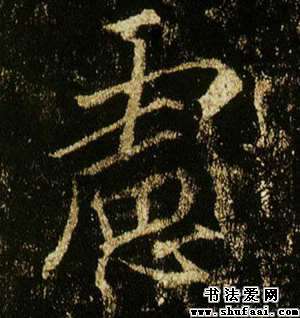 慮
书法爱网
www.shufaai.com